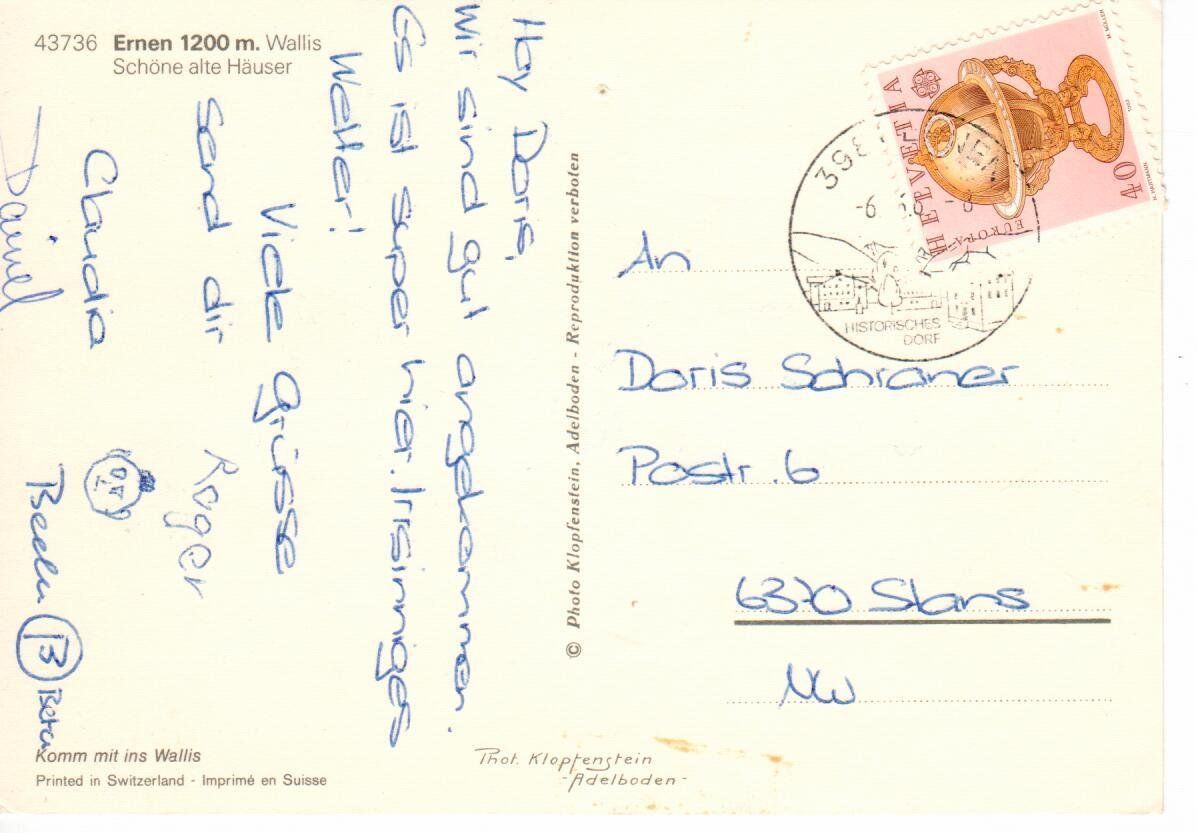 43736 Ernen 1200 m. Wallis
Schöne alte Häuser
Hoy Doris,
Wir sind gut angekommen.
Es ist super hier. Irrsinniges
Wetter!
Viele Grüsse
send dir
Claudia
Roger
Daniel
B
© Photo Klopfenstein, Adelboden - Reproduktion verboten
HELVETIA
EUROPA
40
-6
HISTORISCHES
DORF
An
Doris Schraner
Postr. 6
6370 Stans
NW
Komm mit ins Wallis
Printed in Switzerland - Imprimé en Suisse
Phot. Klopfenstein
- Adelboden -